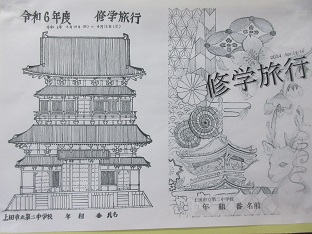 令和6年度　修学旅行
上田市立第二中学校　年　組　番　氏名
修学旅行
上田市立第二中学校
年　組　番　名前